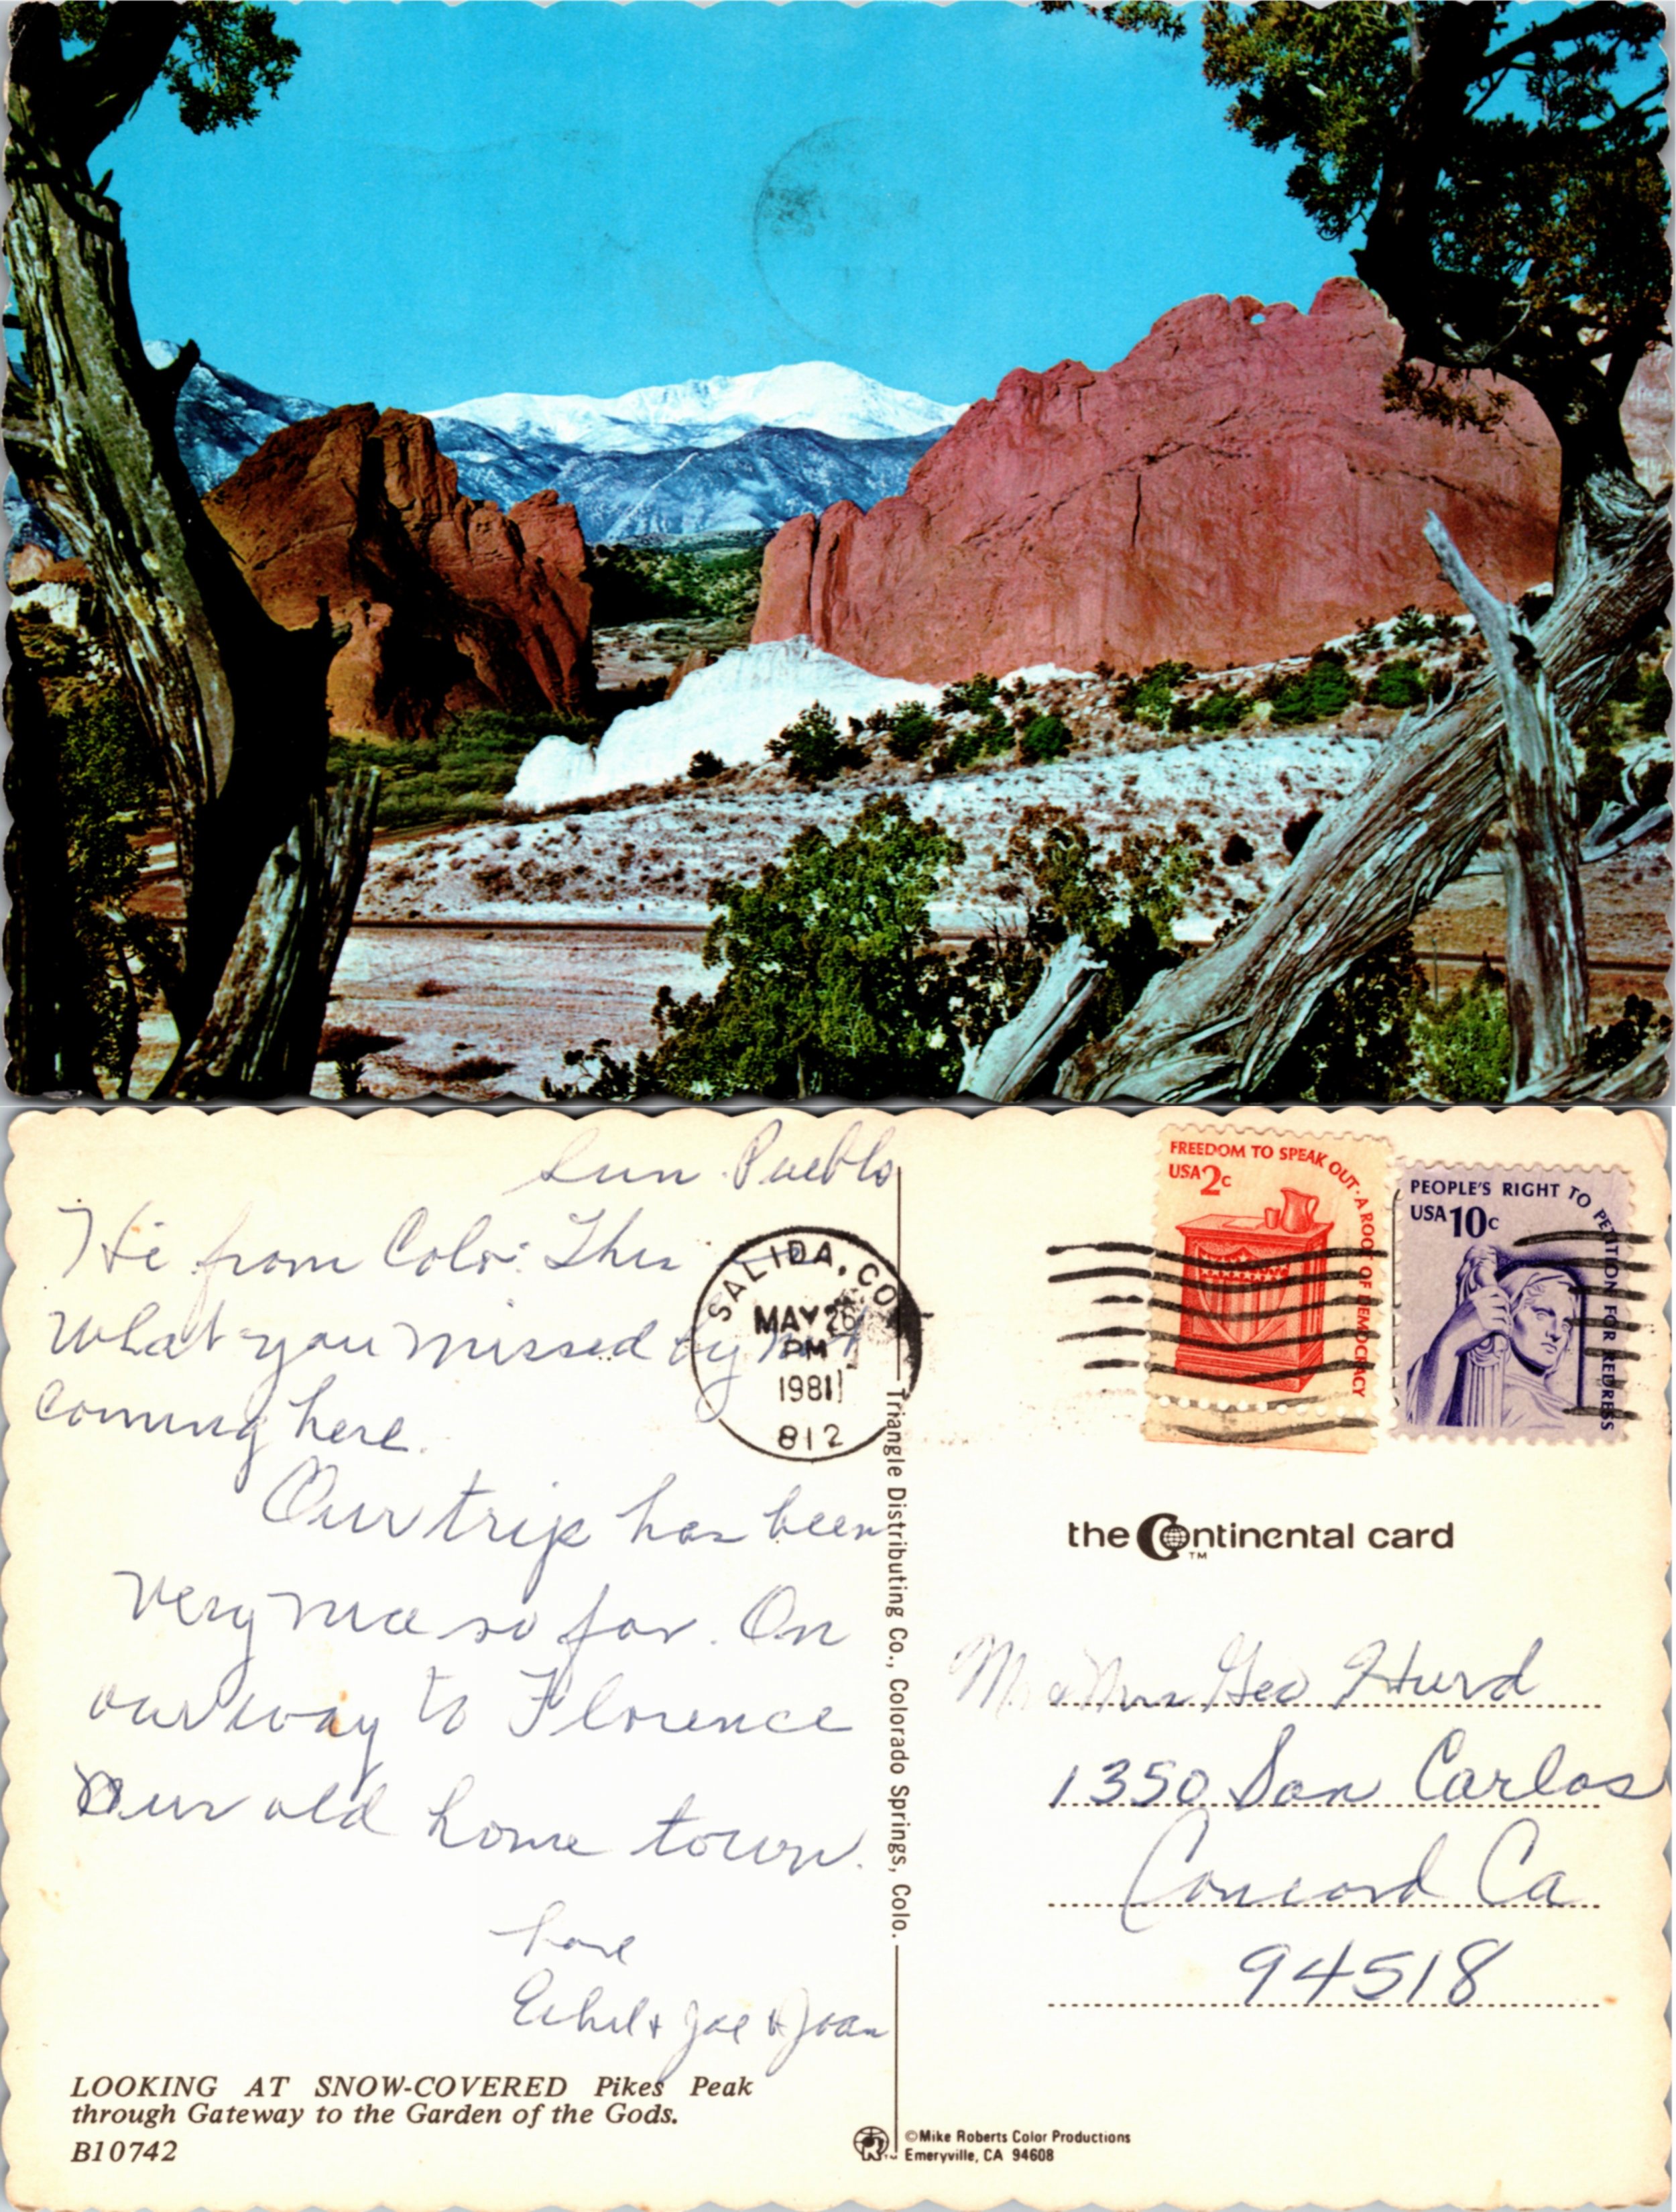 Sun. Pueblo
Hi from Colo. This
What you missed by not
coming here.
Our trip has been
very nice so far. On
our way to Florence
Our old home town.
Love
Ethel & Joe & Joan
LOOKING AT SNOW-COVERED Pikes Peak
through Gateway to the Garden of the Gods.
B10742
SALIDA, CO
MAY 26
PM
1981
812
Triangle Distributing Co., Colorado Springs, Colo.
FREEDOM TO SPEAK OUT · A ROOT OF DEMOCRACY
USA 2c
PEOPLE'S RIGHT TO PETITION FOR REDRESS
USA 10c
the Continental card
TM
Mr & Mrs Geo Hurd
1350 San Carlos
Concord Ca
94518
©Mike Roberts Color Productions
Emeryville, CA 94608